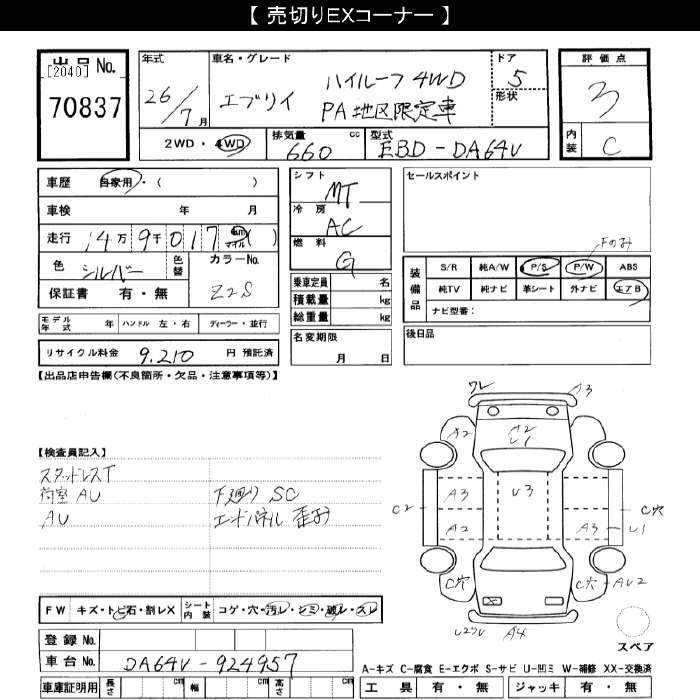 【 売切りEXコーナー 】
出品 No.
[2040]
70837
年式
26/7月
車名・グレード
エブリイ
ハイルーフ 4WD
PA 地区限定車
ドア
5
形状
評価点
3
内装
C
2WD・4WD
排気量
660
cc
型式
EBD-DA64V
車歴 自家用・( )
車検 年 月
走行 14万9千017 km マイル ( )
色 シルバー
色替
カラーNo.
Z2S
保証書 有・無
モデル年式 年
ハンドル 左・右
ディーラー・並行
リサイクル料金 9,210 円 預託済
シフト
MT
冷房
AC
燃料
G
乗車定員 名
積載量 kg
総重量 kg
名変期限
月 日
セールスポイント
Fのみ
装備品
S/R 純A/W P/S P/W ABS
純TV 純ナビ 革シート 外ナビ エアB
ナビ型番:
後日品
【出品店申告欄(不良箇所・欠品・注意事項等)】
【検査員記入】
スタッドレスT
荷室 AU
AU
下廻り SC
エンドパネル 歪み
ワレ
A3
A2
A2
U1
A3
U3
C2
C穴
A2
A3
U1
C穴
C穴
AU2
A4
スペア
FW キズ・トビ石・割レX
シート内装 コゲ・穴・汚レ・シミ・破レ・スレ
登録 No.
車台 No. DA64V-924957
車庫証明用 長さ cm 幅 cm 高さ cm
A-キズ C-腐食 E-エクボ S-サビ U-凹ミ W-補修 XX-交換済
工具 有・無 ジャッキ 有・無